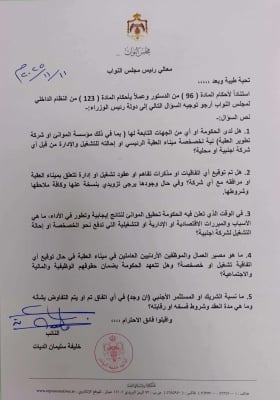 مجلس النواب
٢٠٢٥/١١/١١
معالي رئيس مجلس النواب
تحية طيبة وبعد ،،،،،
استناداً لأحكام المادة ( 96 ) من الدستور وعملاً بأحكام المادة ( 123 ) من النظام الداخلي
لمجلس النواب أرجو توجيه السؤال التالي إلى دولة رئيس الوزراء:-
نص السؤال:-
1. هل لدى الحكومة أو أي من الجهات التابعة لها ( بما في ذلك مؤسسة الموانئ أو شركة
تطوير العقبة) نية لخصخصة ميناء العقبة الرئيسي أو إحالته للتشغيل والإدارة من قبل أي
شركة أجنبية أو محلية؟
2. هل تم توقيع أي اتفاقيات أو مذكرات تفاهم أو عقود تشغيل أو إدارة تتعلق بميناء العقبة
أو مرافقه مع أي شركة؟ وفي حال وجودها يرجى تزويدي بنسخة عنها وكافة ملاحقها
وشروطها.
3. في الوقت الذي تعلن فيه الحكومة تحقيق الموانئ لنتائج إيجابية وتطور في الأداء، ما هي
الأسباب والمبررات الاقتصادية أو الإدارية أو التشغيلية التي تدفع نحو الخصخصة أو إحالة
التشغيل لشركة أجنبية؟
4. ما هو مصير العمال والموظفين الأردنيين العاملين في ميناء العقبة في حال توقيع أي
اتفاقية تشغيل أو خصخصة؟ وهل تتعهد الحكومة بضمان حقوقهم الوظيفية والمالية
والاجتماعية؟
5. ما نسبة الشريك أو المستثمر الأجنبي (إن وجد) في أي اتفاق تم أو يتم التفاوض بشأنه
وما هي مدة العقد وشروط فسخه أو رقابته؟
وأقبلوا فائق الاحترام ،،،،،
النائب
خليفة سليمان الديات